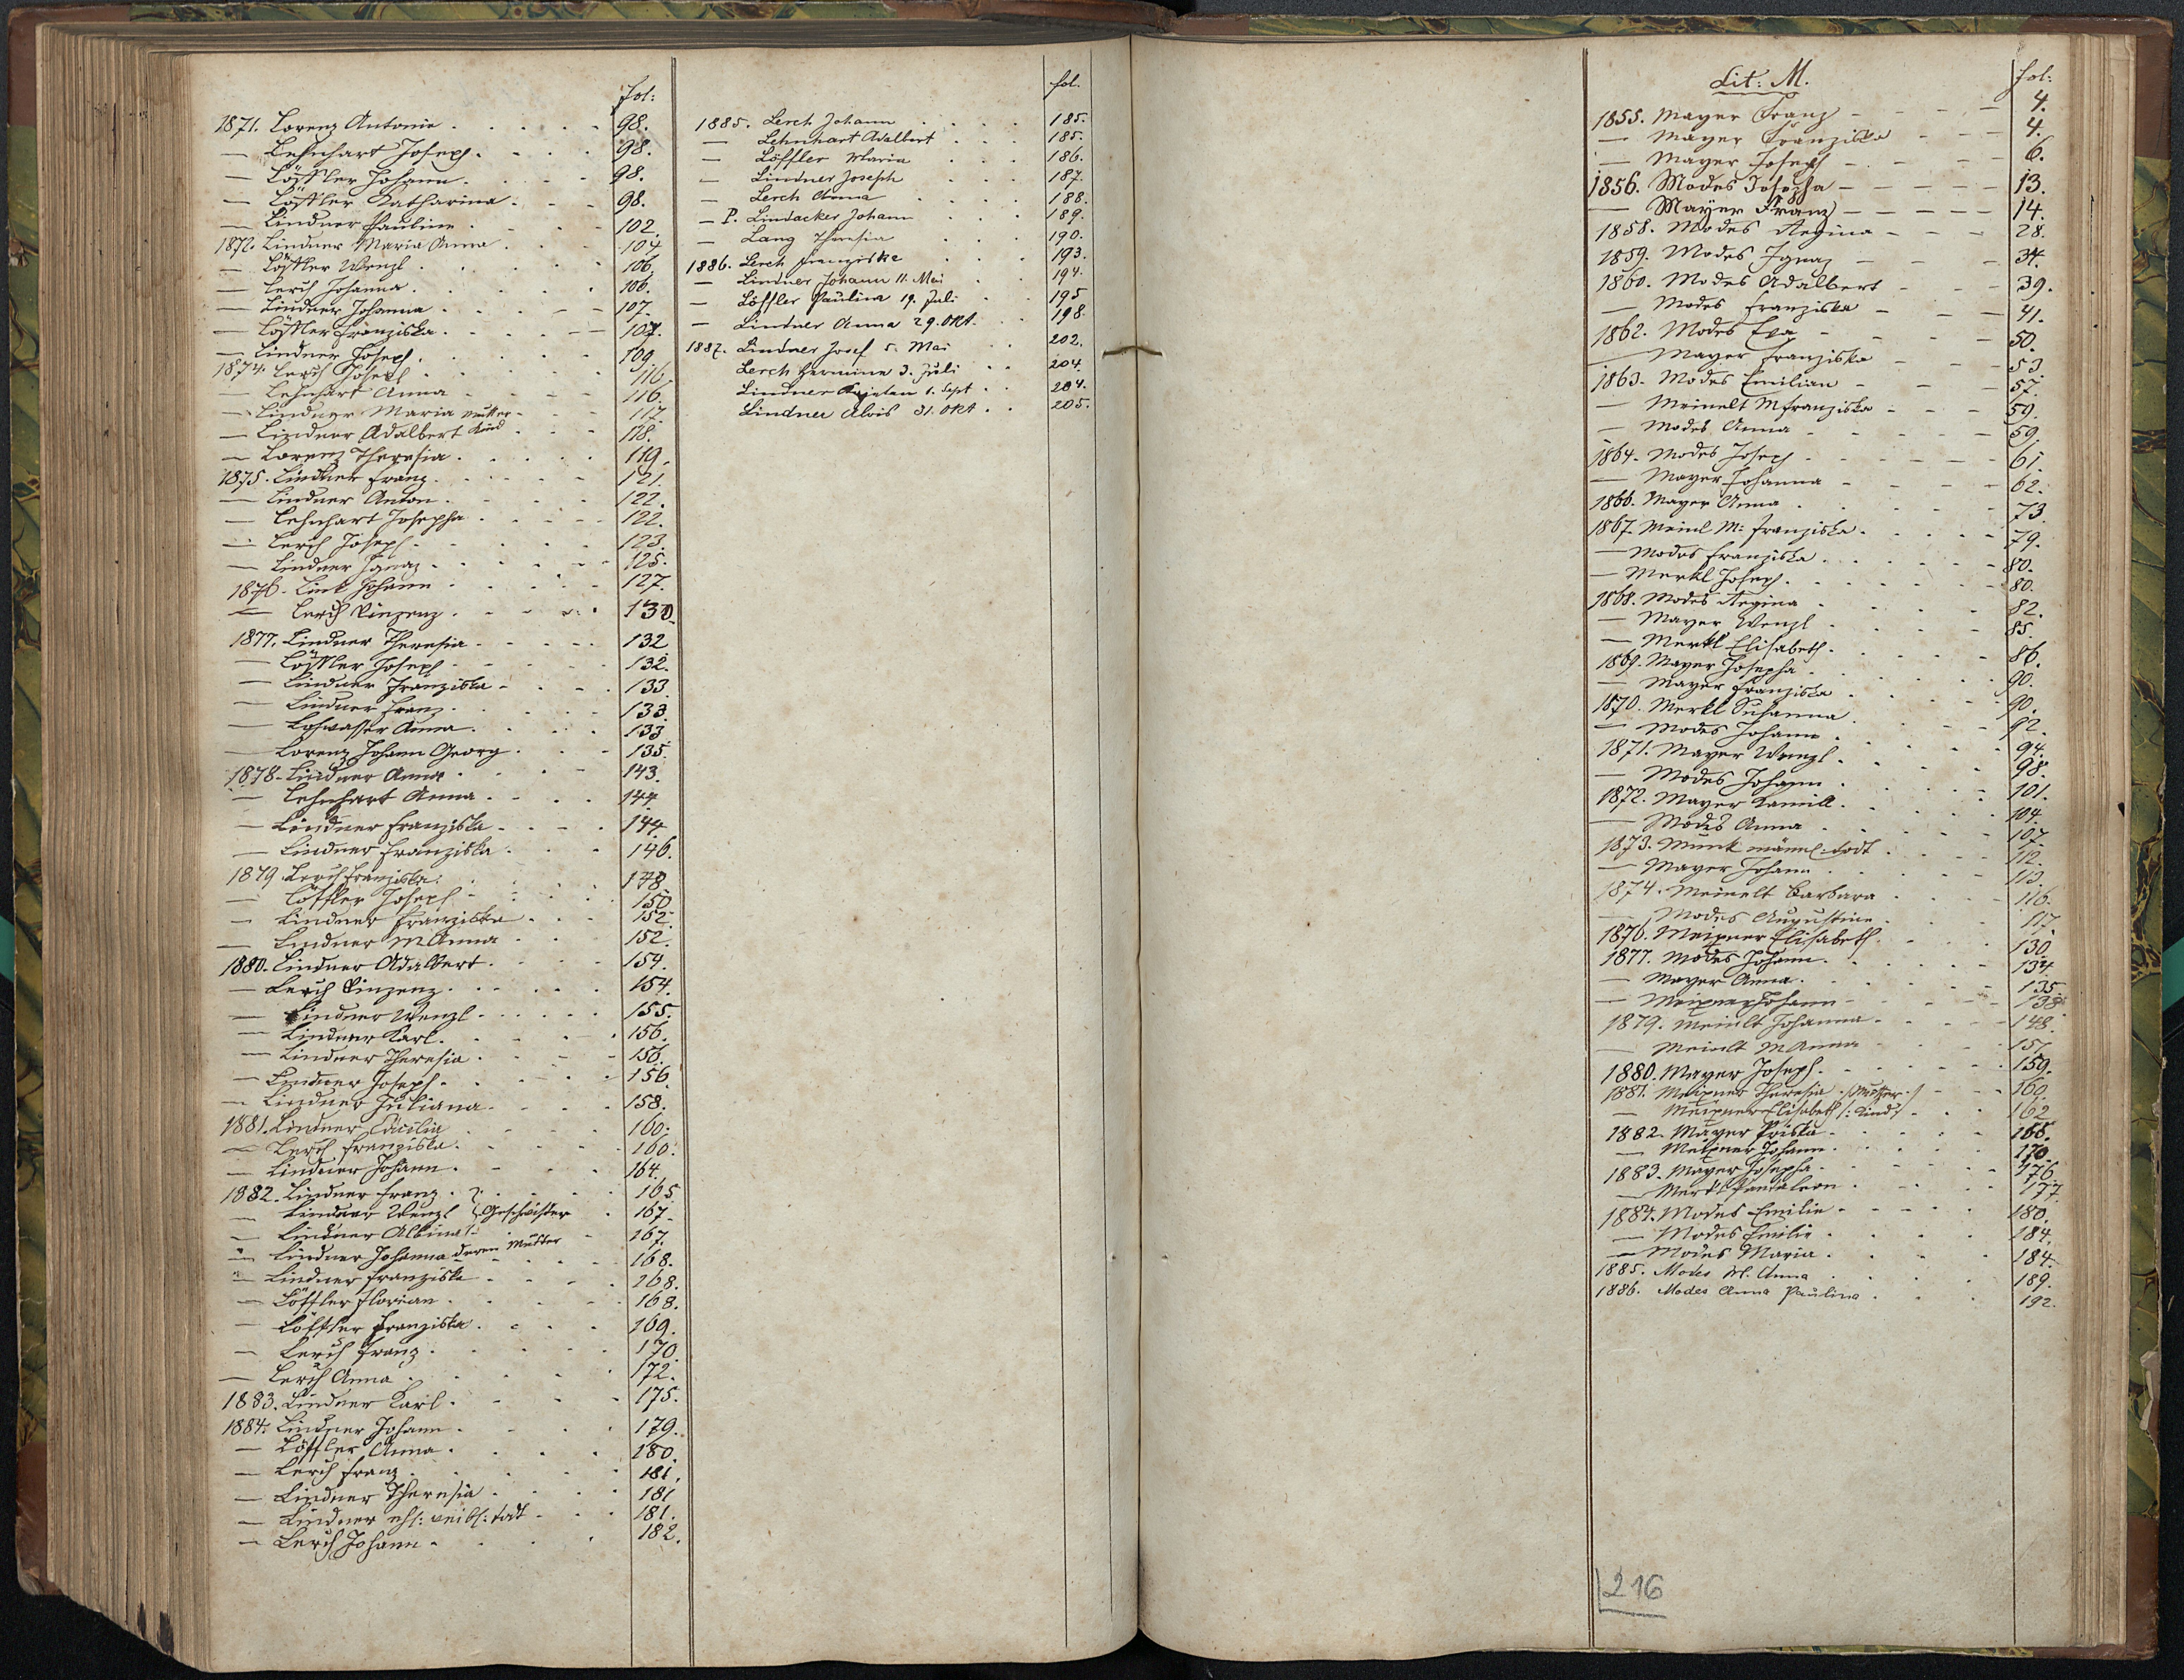 fol:
1871. Lorenz Antonie . . . . . 98.
— Lehnhart Joseph . . . . 98.
— Löffler Johann . . . . 98.
— Löffler Katharina . . . 98.
— Lindner Pauline . . . . 102.
1872. Lindner Maria Anna . . . 104
— Löffler Wenzl . . . . 106.
— Lerch Johanna . . . . 106.
— Lindner Johanna . . . . 107.
— Löffler Franziska . . . . 107.
— Lindner Joseph . . . . 109
1874. Lerch Joseph . . . . 116.
— Lehnhart Anna . . . . 116.
— Lindner Maria Mutter . . . 117
— Lindner Adalbert Kind . . . 118.
— Lorenz Theresia . . . . 119.
1875. Lindner Franz . . . . 121.
— Lindner Anton . . . . 122.
— Lehnhart Josepha . . . . 122.
— Lerch Joseph . . . . 123.
— Lindner Ignaz . . . . 125.
1876. Link Johann . . . . 127.
— Lerch Vinzenz . . . . 130.
1877. Lindner Theresia . . . . 132
— Löffler Joseph . . . . 132.
— Lindner Franziska . . . . 133.
— Lindner Franz . . . . 133.
— Lohwasser Anna . . . . 133
— Lorenz Johann Georg . . . 135.
1878. Lindner Anna . . . . 143.
— Lehnhart Anna . . . . 144.
— Lindner Franziska . . . . 144.
— Lindner Franziska . . . . 146.
1879 Lerch Franziska . . . . 148
— Löffler Joseph . . . . 150
— Lindner Franziska . . . 152.
— Lindner M Anna . . . 152.
1880. Lindner Adalbert . . . . 154.
— Lerch Vinzenz . . . . 154.
— Lindner Wenzl . . . . 155.
— Lindner Karl . . . . 156.
— Lindner Theresia . . . . 156.
— Lindner Joseph . . . . 156
— Lindner Juliana . . . . 158.
1881. Lindner Cäcilia . . . . 160.
— Lerch Franziska . . . . 160.
— Lindner Johann . . . . 164.
1882. Lindner Franz . . . . 165
— Lindner Wenzl } Geschwister . 167
— Lindner Albina . . 167.
— Lindner Johanna deren Mutter . . 168.
— Lindner Franziska . . . . 168.
— Löffler Florian . . . . 168.
— Löffler Franziska . . . . 169.
— Lerch Franz . . . . 170
— Lerch Anna . . . . 172.
1883. Lindner Karl . . . . 175.
1884. Lindner Johann . . . . 179.
— Löffler Anna . . . . 180.
— Lerch Franz . . . . 181.
— Lindner Theresia . . . . 181
— Lindner ehl: weibl: todt . . . 181.
— Lerch Johann . . . . 182.
fol.
1885. Lerch Johann . . . . 185.
— Lehnhart Adalbert . . . 185.
— Löffler Maria . . . 186.
— Lindner Joseph . . . 187.
— Lerch Anna . . . . 188.
— P. Lindacker Johann . . . 189.
— Lang Theresia . . . 190.
1886. Lerch Franziska . . . 193.
— Lindner Johann 11. Mai . . 194.
— Löffler Paulina 19. Juli . . 195
— Lindner Anna 29. Okt. . . 198
1887. Lindner Josef 5. Mai . . 202.
Lerch Hermine 3. Juli . . 204.
Lindner Kajetan 1. Sept . . 204.
Lindner Alois 31. Okt . . 205.
Lit: M. fol:
1855. Mayer Franz — — — 4.
— Mayer Franziska — — — 4.
— Mayer Joseph — — — 6.
1856. Modes Josepha — — — — 13.
— Mayer Franz — — — — 14.
1858. Modes Regina — — — 28.
1859. Modes Ignaz — — — 34.
1860. Modes Adalbert — — — 39.
— Modes Franziska — — — 41.
1862. Modes Eva — — — 50.
— Mayer Franziska — — — 53
1863. Modes Emilian — — — 57.
— Meinelt M Franziska — — — 59.
— Modes Anna — — — 59.
1864. Modes Joseph — — — 61.
— Mayer Johanna — — — 62.
1866. Mayer Anna . . . . 73.
1867. Meinl M: Franziska . . . . 79.
— Modes Franziska . . . . 80.
— Merkl Joseph . . . . 80.
1868. Modes Regina . . . . 82.
— Mayer Wenzl . . . . 85.
— Merkl Elisabeth . . . . 86.
1869. Mayer Josepha . . . . 90.
— Mayer Franziska . . . . 90.
1870. Merkl Susanna . . . . 92.
— Modes Johann . . . . 94.
1871. Mayer Wenzl . . . . 98.
— Modes Johann . . . . 101.
1872. Mayer Kamill . . . . 104.
— Modes Anna . . . . 107.
1873. Munk männl: todt . . . 112.
— Mayer Johann . . . . 113.
1874. Meinelt Barbara . . . . 116.
— Modes Augustine . . . . 117.
1876. Meixner Elisabeth . . . . 130.
1877. Modes Johann . . . . 134
— Mayer Anna . . . . 135.
— Meixner Johann . . . . 138.
1879. Meinlt Johanna . . . . 148.
— Meinlt M Anna . . . . 157
1880. Mayer Joseph . . . . 159.
1881. Meixner Theresia /:Mutter:/ — 160.
— Meixner Elisabeth /:Kind:/ . . . 162
1882. Mayer Priska . . . . 166.
— Meixner Johann . . . . 170.
1883. Mayer Josepha . . . . 176
— Merkl Pantaleon . . . . 177.
1884. Modes Emilie . . . . 180.
— Modes Emilie . . . . 184.
— Modes Maria . . . . 184.
1885. Modes M. Anna . . . . 189.
1886. Modes Anna Paulina . . . 192.
216